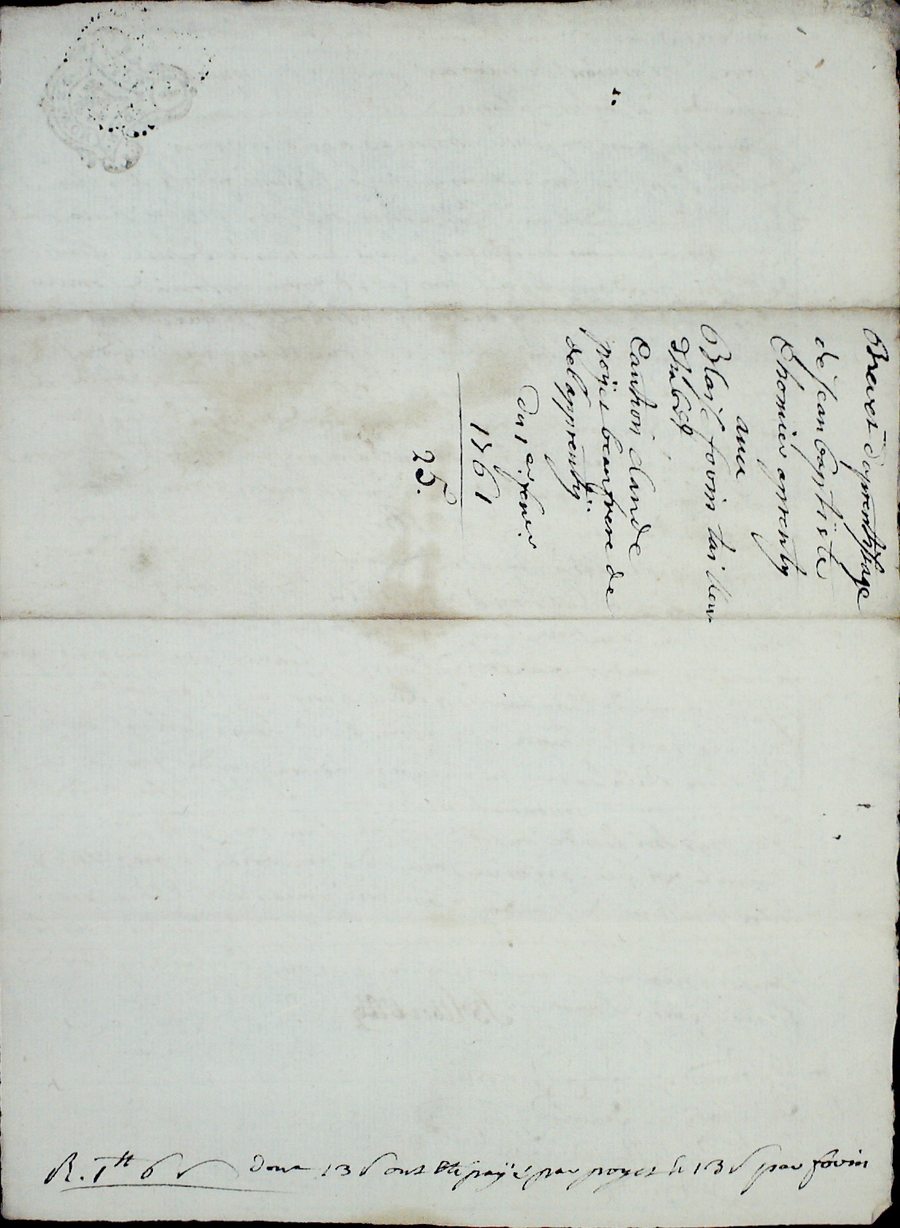 Brevet d'aprentissage
de jean baptiste
Chomier apprenty
avec
Blaise fovin tailleur
Caution claude
poyet beaufrere de
de lapprenty
du 1 9 fevrier
1761
25.
R. 1ᵗᵗ 6 s dont 13 s ont été payé par poyet & 13 s par fovin